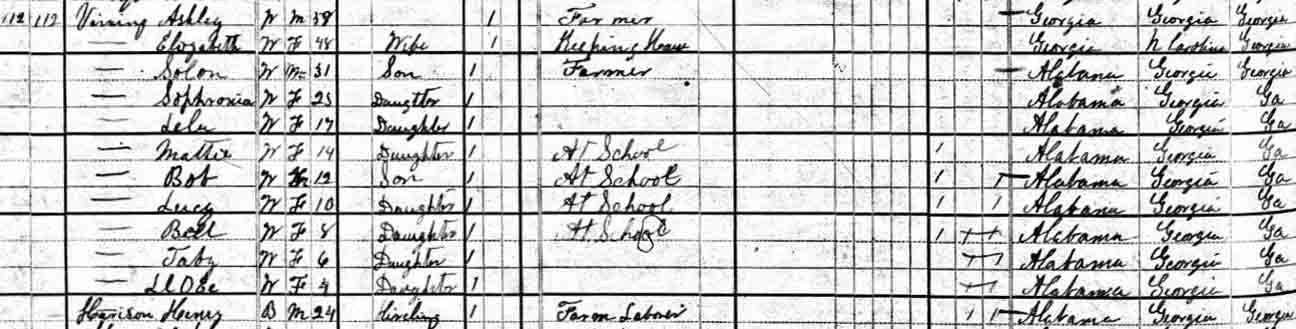 112 112 Vining Ashley W M 58 1 Farmer Georgia Georgia Georgia
— Elizabeth W F 48 Wife 1 Keeping House Georgia N Carolina Georgia
— Solon W M 31 Son 1 Farmer Alabama Georgia Georgia
— Sophronia W F 25 Daughter 1 Alabama Georgia Ga
— Lela W F 17 Daughter 1 Alabama Georgia Ga
— Mattie W F 14 Daughter 1 At School 1 Alabama Georgia Ga
— Bob W M 12 Son 1 At School 1 Alabama Georgia Ga
— Lucy W F 10 Daughter 1 At School 1 1 Alabama Georgia Ga
— Bell W F 8 Daughter 1 At School 1 Alabama Georgia Ga
— Taby W F 6 Daughter 1 Alabama Georgia Ga
— W F 4 Daughter 1 Alabama Georgia Ga
Harrison Henry B M 24 1 Farm Laborer 1 1 Alabama Georgia Georgia